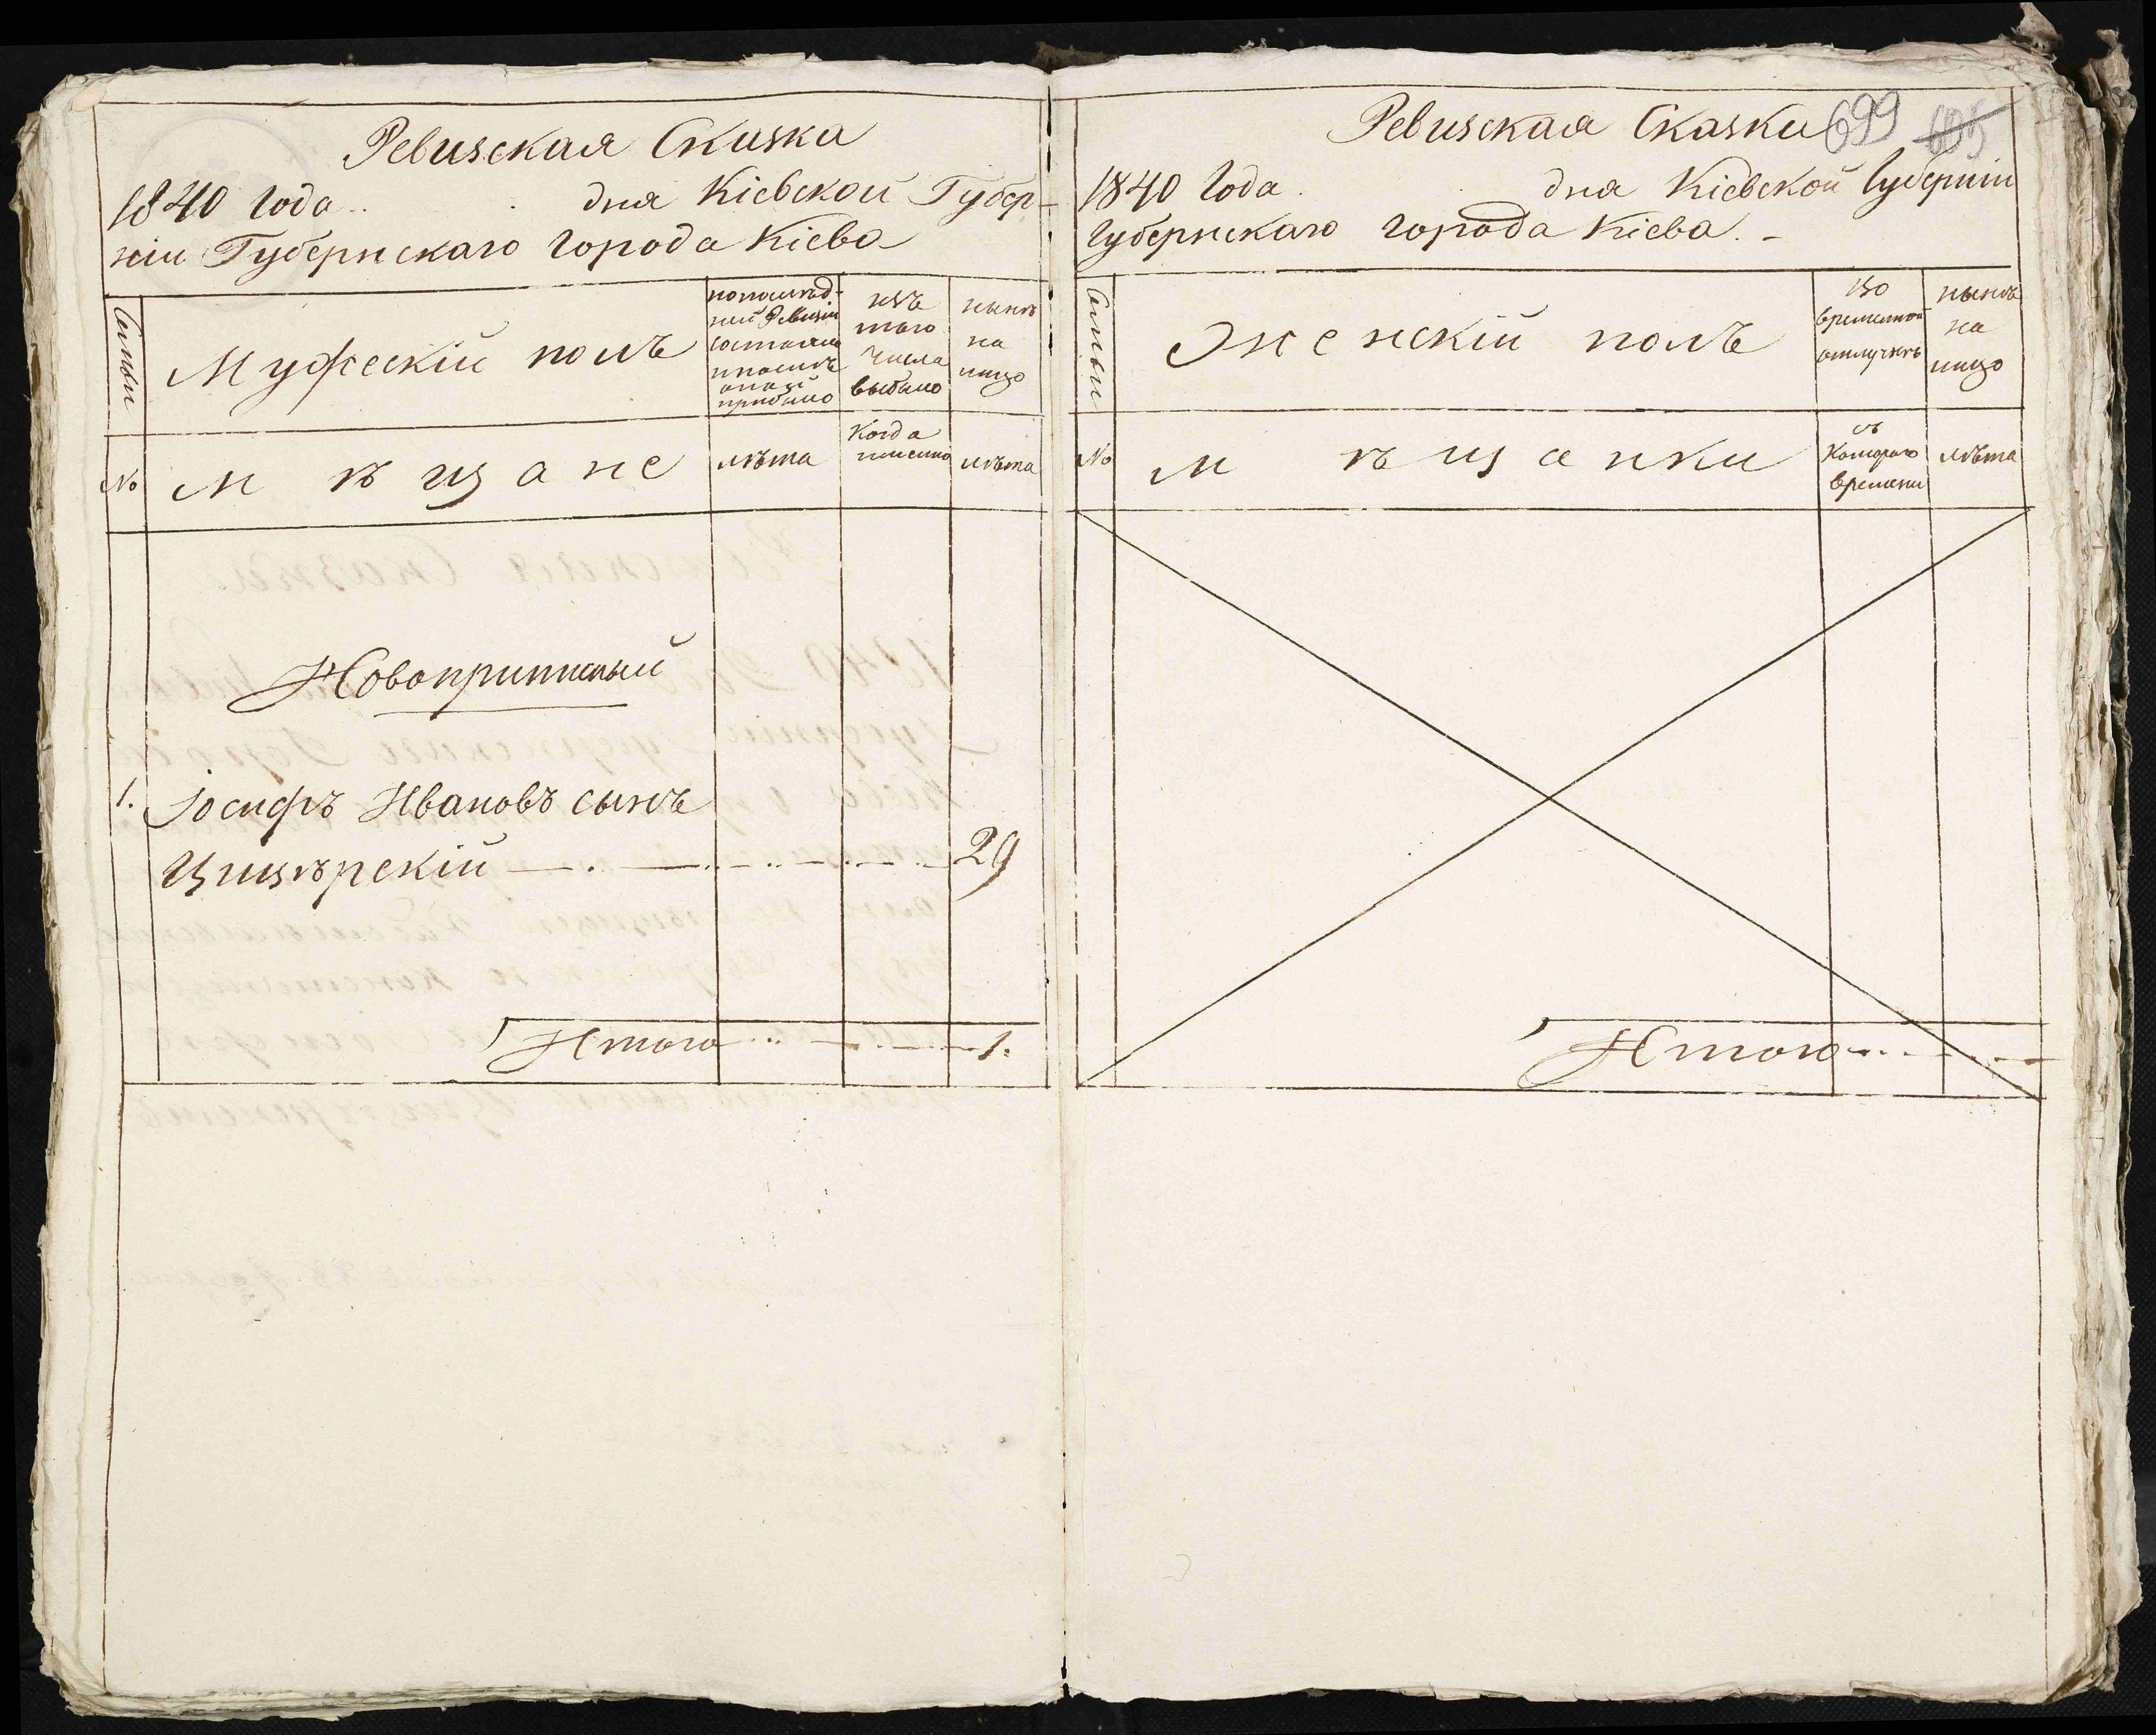 Ревизская Сказка
1840 Года .. . дня Кіевской Губер-
ніи Губернскаго Города Кіева
Семьи
Мужескій полъ
по послѣд-
ней Ревизіи
состояло
и послѣ
оной
прибыло
изъ
того
числа
выбыло
нынѣ
на
лицо
№
мѣщане
лѣта
Когда
именно
лѣта
Новоприписный
1. Іосифъ Ивановъ сынъ
29
Итого 1.
Ревизская Сказка 699 695
1840 Года . дня Кіевской Губерніи
Губернскаго города Кіева. -
Семьи
Женскій полъ
Во
временной
отлучкѣ
нынѣ
на
лицо
№
мѣщанки
съ
Котораго
времени
лѣта
Итого